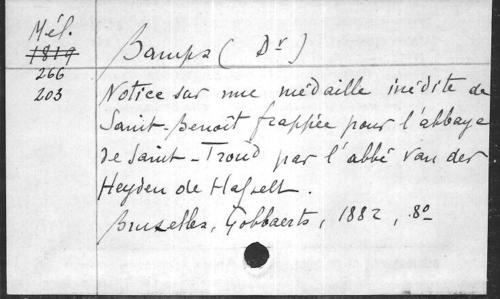 Mél.
1819
266
203
Bamps (Dr)
Notice sur une médaille inédite de
Saint-Benoît frappée pour l'abbaye
de Saint-Trond par l'abbé Van der
Heyden de Hasselt.
Bruxelles, Gobbaerts, 1882, 8o